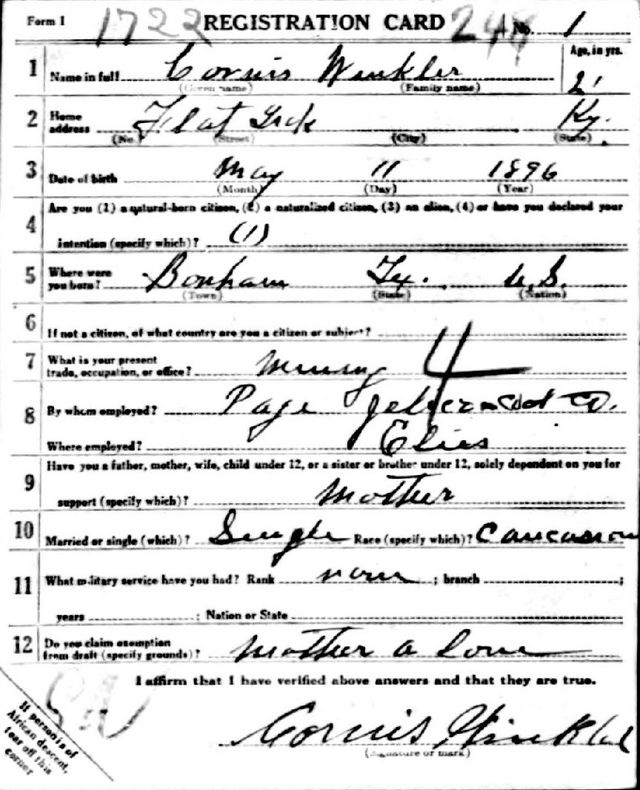 Form 1 1722 REGISTRATION CARD 248 No. 1
1 Name in full Cornis Winkler Age, in yrs.
(Given name) (Family name) 21
2 Home address Flat Lick Ky.
(No.) (Street) (City) (State)
3 Date of birth May 11 1896
(Month) (Day) (Year)
4 Are you (1) a natural-born citizen, (2) a naturalized citizen, (3) an alien, (4) or have you declared your
intention (specify which)? (1)
5 Where were you born? Bonham Tx. U.S.
(Town) (State) (Nation)
6 If not a citizen, of what country are you a citizen or subject?
7 What is your present trade, occupation, or office? mining 4
8 By whom employed? Page Co.
Where employed?
9 Have you a father, mother, wife, child under 12, or a sister or brother under 12, solely dependent on you for
support (specify which)? Mother
10 Married or single (which)? Single Race (specify which)? Caucasian
11 What military service have you had? Rank none ; branch ;
years ; Nation or State
12 Do you claim exemption from draft (specify grounds)? Mother a lone
I affirm that I have verified above answers and that they are true.
Cornis Winkler
(Signature or mark)
If person is of
African descent,
tear off this
corner